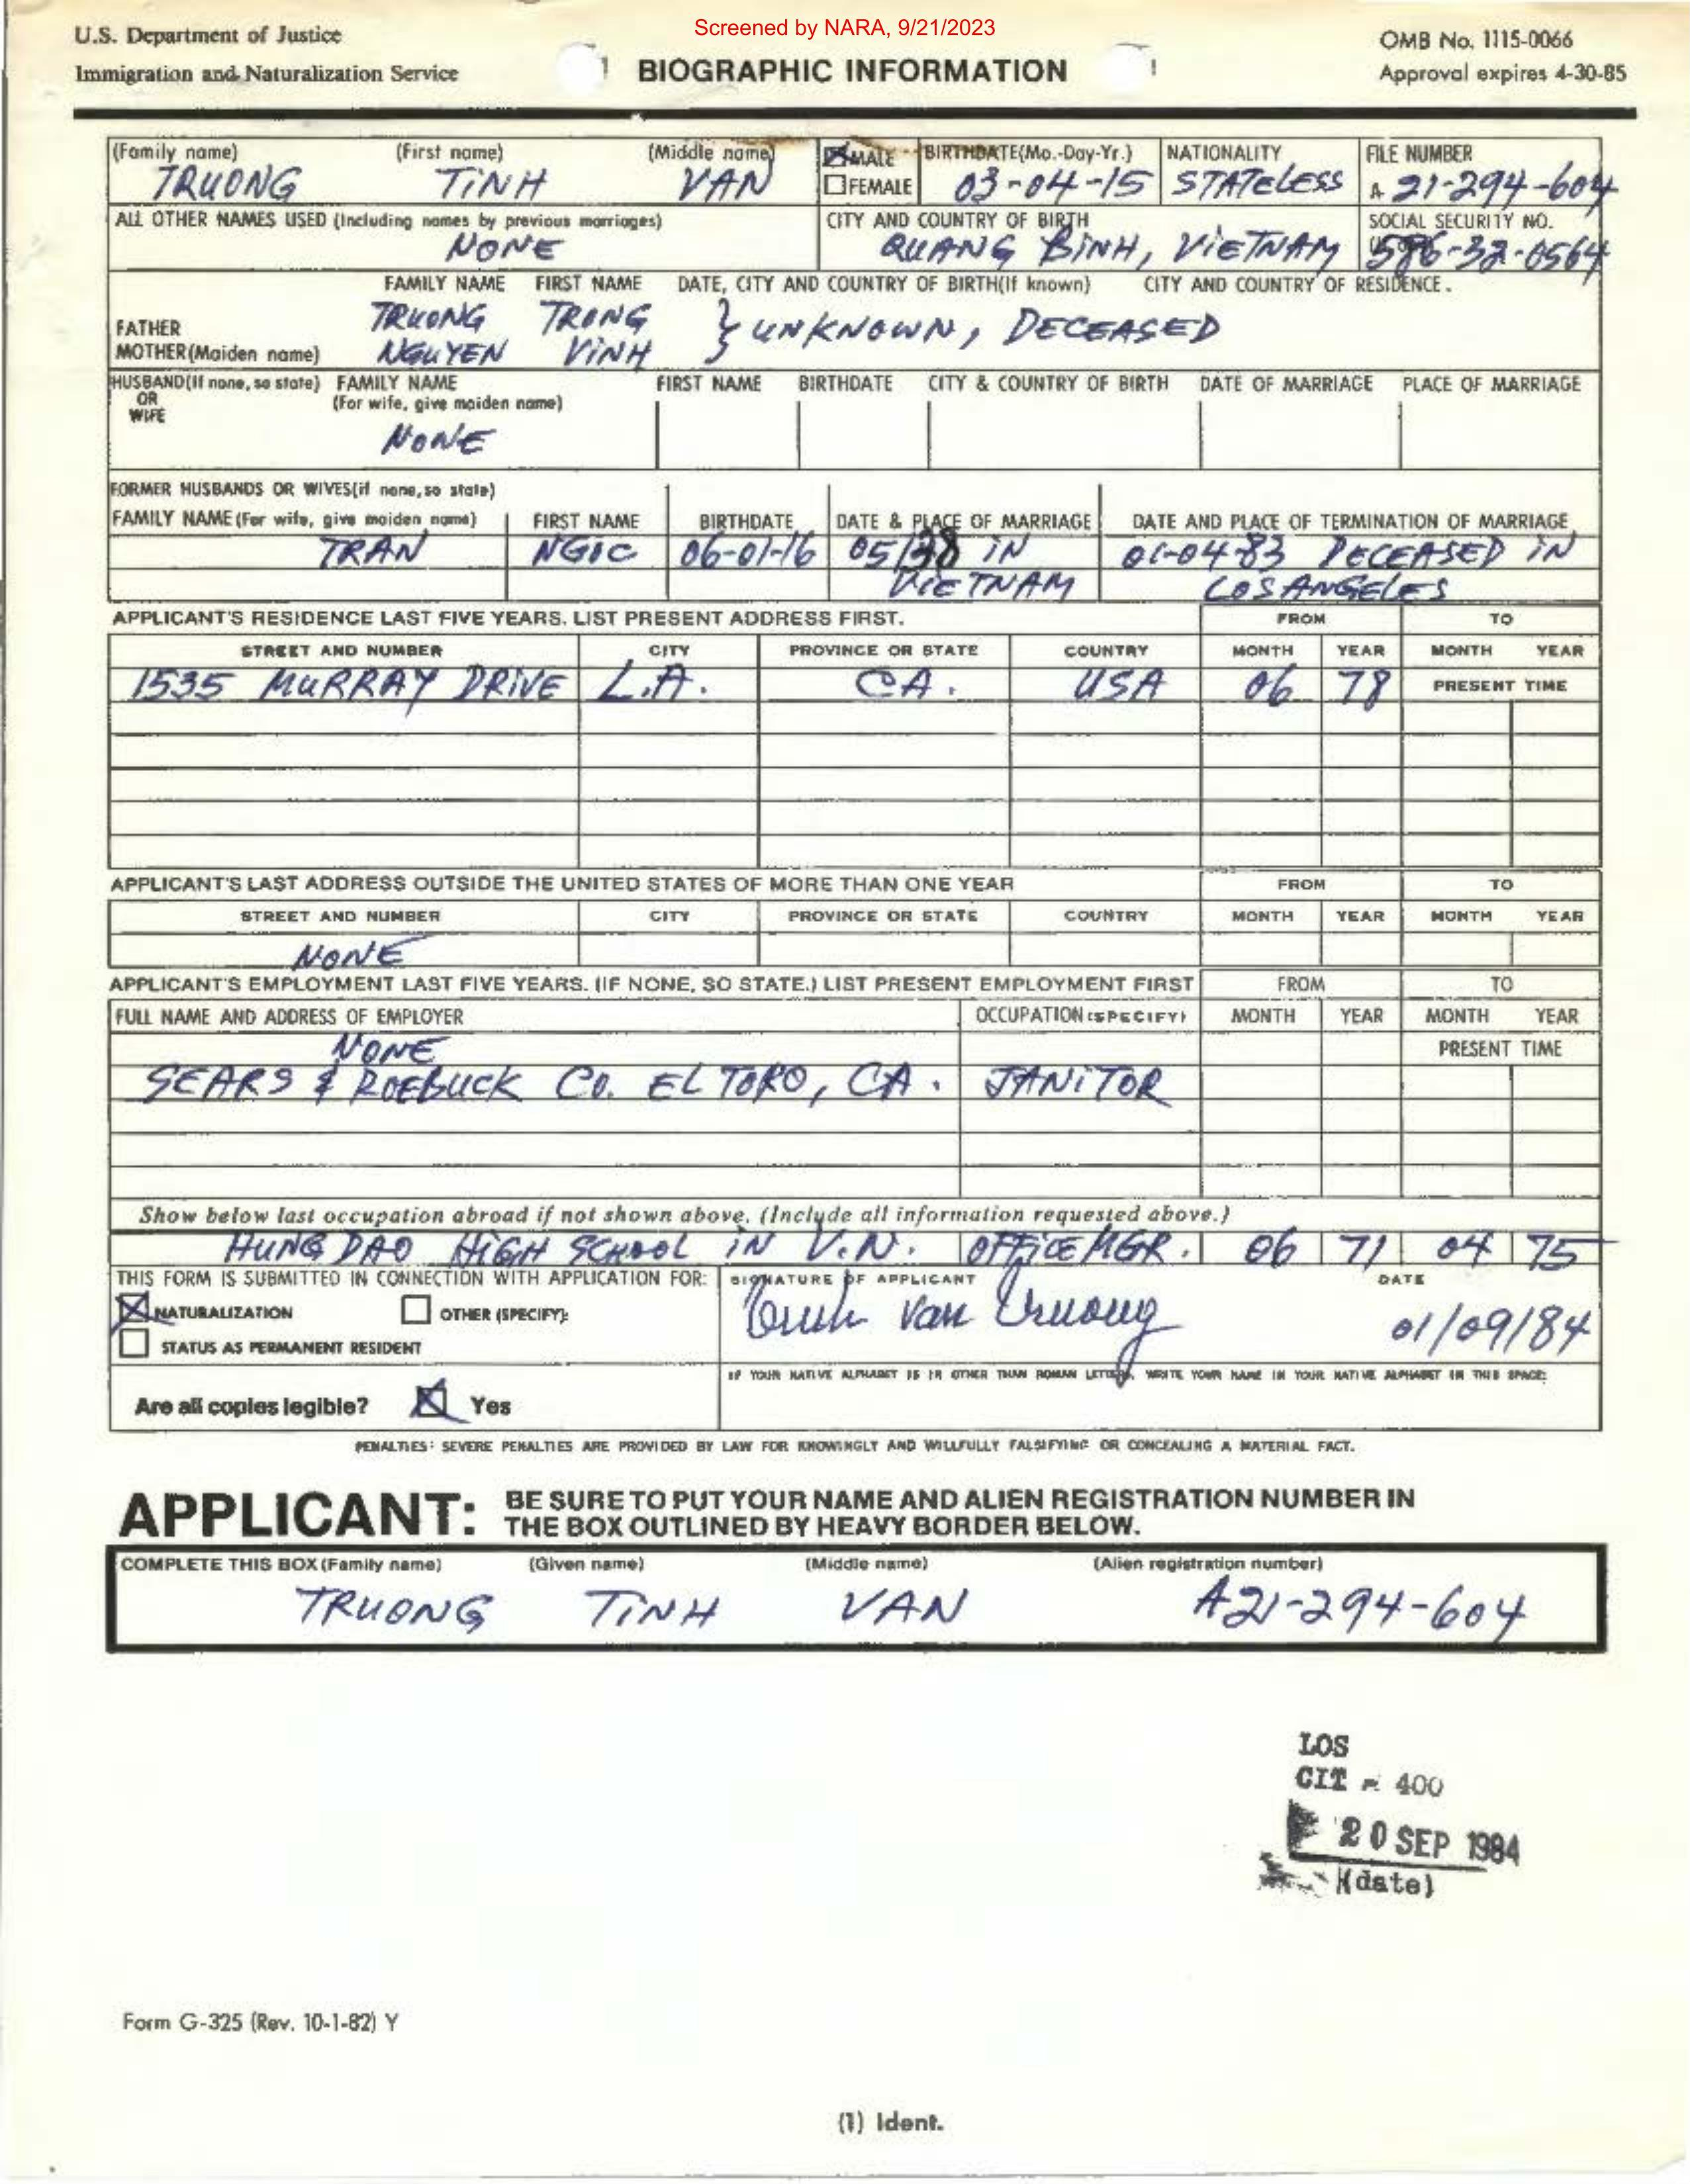 Screened by NARA, 9/21/2023
U.S. Department of Justice
Immigration and Naturalization Service
BIOGRAPHIC INFORMATION
OMB No. 1115-0066
Approval expires 4-30-85
(Family name) (First name) (Middle name) MALE BIRTHDATE(Mo.-Day-Yr.) NATIONALITY FILE NUMBER
TRUONG TINH VAN FEMALE 03-04-15 STATELESS A 21-294-604
ALL OTHER NAMES USED (Including names by previous marriages) CITY AND COUNTRY OF BIRTH SOCIAL SECURITY NO.
NONE QUANG BINH, VIETNAM 586-32-0564
FAMILY NAME FIRST NAME DATE, CITY AND COUNTRY OF BIRTH(If known) CITY AND COUNTRY OF RESIDENCE.
FATHER TRUONG TRONG } UNKNOWN, DECEASED
MOTHER(Maiden name) NGUYEN VINH
HUSBAND(If none, so state) FAMILY NAME FIRST NAME BIRTHDATE CITY & COUNTRY OF BIRTH DATE OF MARRIAGE PLACE OF MARRIAGE
OR (For wife, give maiden name)
WIFE
NONE
FORMER HUSBANDS OR WIVES(if none, so state)
FAMILY NAME (For wife, give maiden name) FIRST NAME BIRTHDATE DATE & PLACE OF MARRIAGE DATE AND PLACE OF TERMINATION OF MARRIAGE
TRAN NGOC 06-01-16 05/38 IN 01-04-83 DECEASED IN
VIETNAM LOS ANGELES
APPLICANT'S RESIDENCE LAST FIVE YEARS. LIST PRESENT ADDRESS FIRST. FROM TO
STREET AND NUMBER CITY PROVINCE OR STATE COUNTRY MONTH YEAR MONTH YEAR
1535 MURRAY DRIVE L.A. CA. USA 06 78 PRESENT TIME
APPLICANT'S LAST ADDRESS OUTSIDE THE UNITED STATES OF MORE THAN ONE YEAR FROM TO
STREET AND NUMBER CITY PROVINCE OR STATE COUNTRY MONTH YEAR MONTH YEAR
NONE
APPLICANT'S EMPLOYMENT LAST FIVE YEARS. (IF NONE, SO STATE.) LIST PRESENT EMPLOYMENT FIRST FROM TO
FULL NAME AND ADDRESS OF EMPLOYER OCCUPATION (SPECIFY) MONTH YEAR MONTH YEAR
NONE PRESENT TIME
SEARS & ROEBUCK CO. EL TORO, CA. JANITOR
Show below last occupation abroad if not shown above. (Include all information requested above.)
HUNG DAO HIGH SCHOOL IN V.N. OFFICE MGR. 06 71 04 75
THIS FORM IS SUBMITTED IN CONNECTION WITH APPLICATION FOR: SIGNATURE OF APPLICANT DATE
NATURALIZATION OTHER (SPECIFY): Tinh Van Truong 01/09/84
STATUS AS PERMANENT RESIDENT
IF YOUR NATIVE ALPHABET IS IN OTHER THAN ROMAN LETTERS, WRITE YOUR NAME IN YOUR NATIVE ALPHABET IN THIS SPACE:
Are all copies legible? Yes
PENALTIES: SEVERE PENALTIES ARE PROVIDED BY LAW FOR KNOWINGLY AND WILLFULLY FALSIFYING OR CONCEALING A MATERIAL FACT.
APPLICANT: BE SURE TO PUT YOUR NAME AND ALIEN REGISTRATION NUMBER IN
THE BOX OUTLINED BY HEAVY BORDER BELOW.
COMPLETE THIS BOX (Family name) (Given name) (Middle name) (Alien registration number)
TRUONG TINH VAN A21-294-604
LOS
CIT - 400
20 SEP 1984
(date)
Form G-325 (Rev. 10-1-82) Y
(1) Ident.